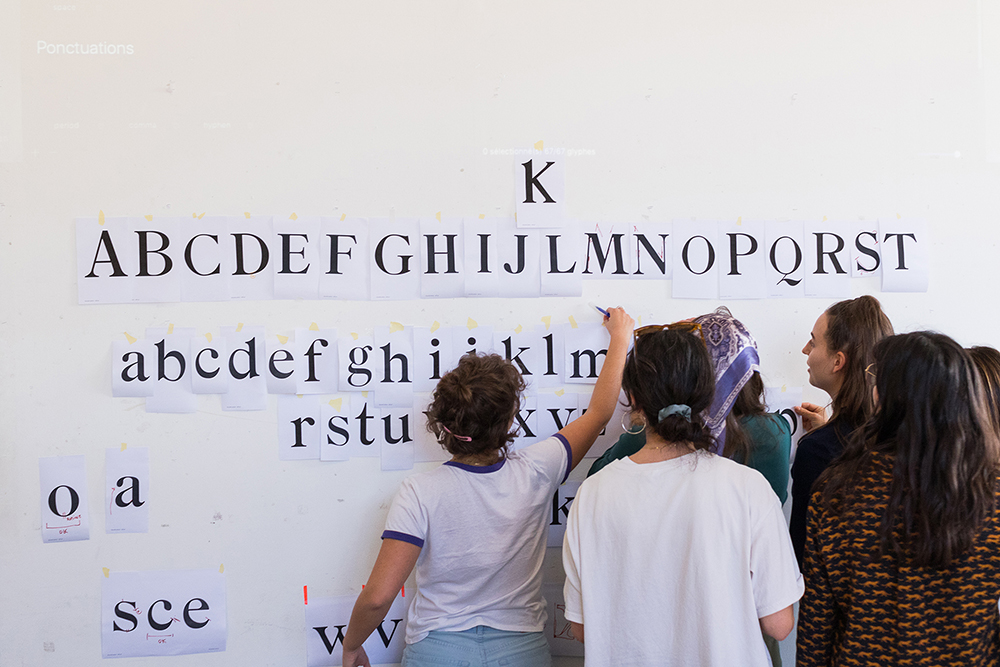 Ponctuations
K
ABCDEFGHIJLMNOPQRST
abcdefghijklm
rstu xyz
k
o
OK
a
sce
OK
wv